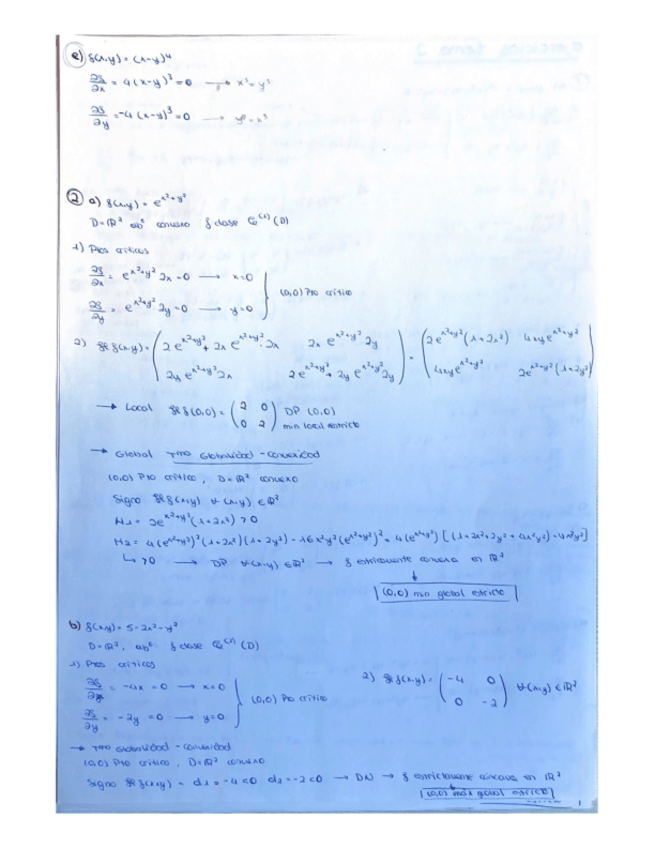 e) f(x,y) = (x-y)⁴
∂f/∂x = 4(x-y)³ = 0 → x³ = y³
∂f/∂y = -4(x-y)³ = 0 → y³ = x³
② a) f(x,y) = e^(x²+y²)
D = ℝ² ab° convexo f clase C^(2) (D)
1) Ptos críticos
∂f/∂x = e^(x²+y²) 2x = 0 → x = 0
∂f/∂y = e^(x²+y²) 2y = 0 → y = 0 } (0,0) Pto crítico
2) Hf(x,y) = ( 2e^(x²+y²) + 2x e^(x²+y²) · 2x   2x e^(x²+y²) 2y ) = ( 2e^(x²+y²) (1+2x²)   4xy e^(x²+y²) )
( 2y e^(x²+y²) 2x   2e^(x²+y²) + 2y e^(x²+y²) 2y )   ( 4xy e^(x²+y²)   2e^(x²+y²) (1+2y²) )
→ Local Hf(0,0) = ( 2 0 ) DP (0,0)
( 0 2 ) min local estricto
→ Global Tma Globalidad - convexidad
(0,0) Pto crítico, D = ℝ² convexo
Signo Hf(x,y) ∀ (x,y) ∈ ℝ²
H₁ = 2e^(x²+y²) (1+2x²) > 0
H₂ = 4(e^(x²+y²))² (1+2x²)(1+2y²) - 16x²y² (e^(x²+y²))² = 4(e^(x²+y²)) [(1+2x²+2y²+4x²y²) - 4x²y²]
↳ > 0 → DP ∀(x,y) ∈ ℝ² → f estrictamente convexa en ℝ²
↓
(0,0) min global estricto
b) f(x,y) = 5 - 2x² - y²
D = ℝ², ab° f clase C^(2) (D)
1) Ptos críticos
∂f/∂x = -4x = 0 → x = 0
∂f/∂y = -2y = 0 → y = 0 } (0,0) Pto crítico
2) Hf(x,y) = ( -4 0 ) ∀(x,y) ∈ ℝ²
( 0 -2 )
→ Tma Globalidad - convexidad
(0,0) Pto crítico, D = ℝ² convexo
Signo Hf(x,y) = d₁ = -4 < 0 d₂ = -2 < 0 → DN → f estrictamente cóncava en ℝ²
(0,0) máx global estricto
1